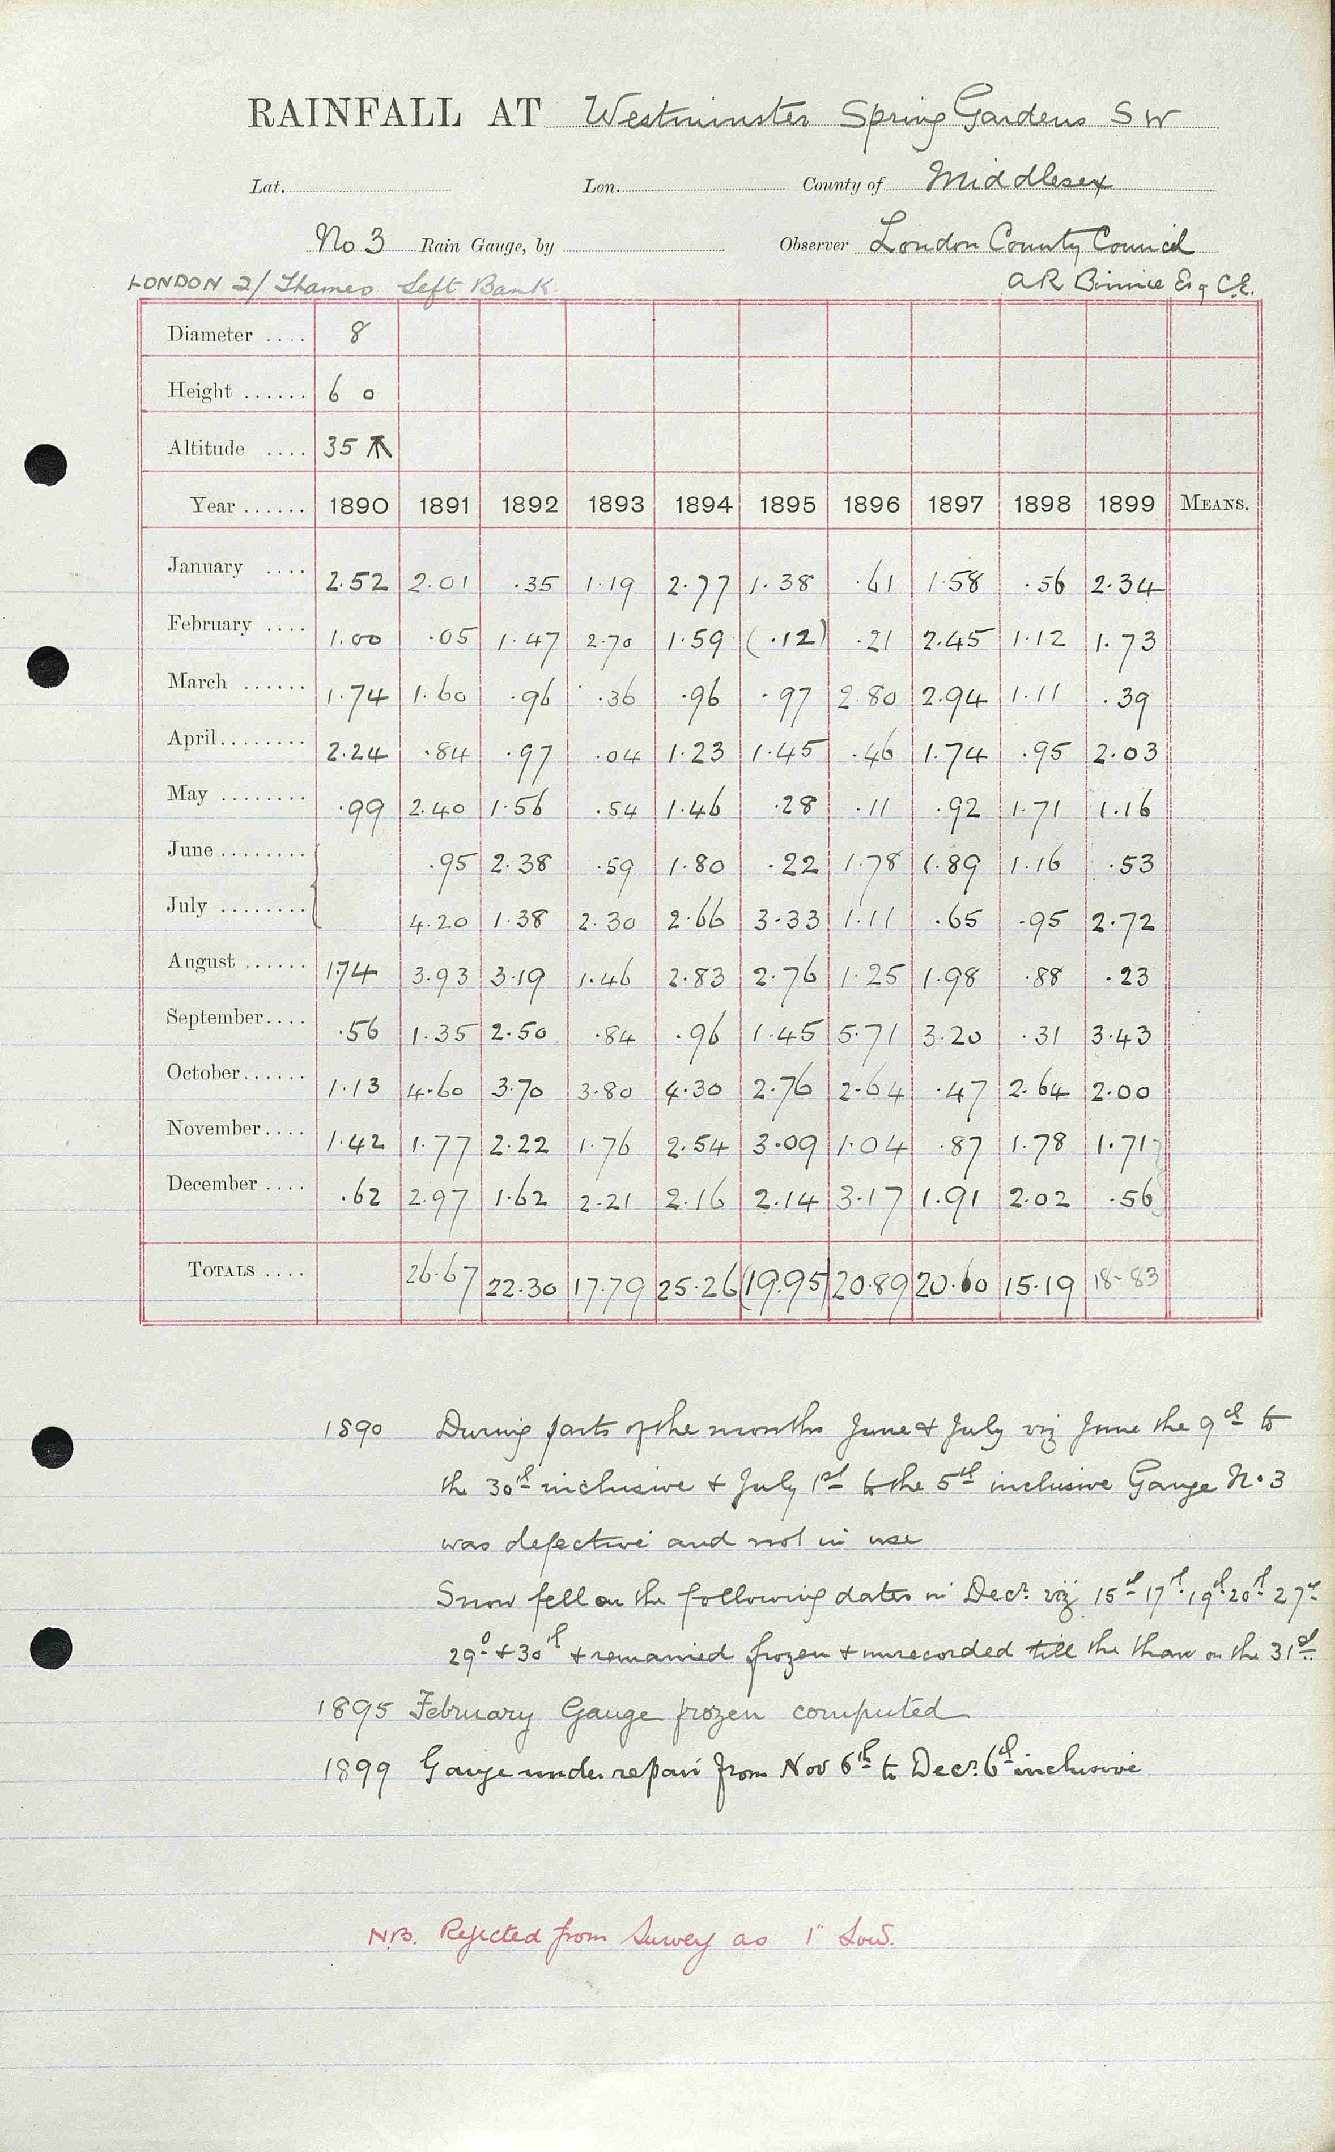 RAINFALL AT Westminster Spring Gardens SW
Lat. Lon. County of Middlesex
No 3 Rain Gauge, by Observer London County Council
LONDON 2/ Thames Left Bank A R Binnie Esq C.E.
Diameter .... 8
Height ...... 6 0
Altitude .... 35
Year ...... 1890 1891 1892 1893 1894 1895 1896 1897 1898 1899 MEANS.
January .... 2.52 2.01 .35 1.19 2.77 1.38 .61 1.58 .56 2.34
February .... 1.00 .05 1.47 2.70 1.59 (.12) .21 2.45 1.12 1.73
March ...... 1.74 1.60 .96 .36 .96 .97 2.80 2.94 1.11 .39
April........ 2.24 .84 .97 .04 1.23 1.45 .46 1.74 .95 2.03
May ........ .99 2.40 1.56 .54 1.46 .28 .11 .92 1.71 1.16
June ........ .95 2.38 .59 1.80 .22 1.78 1.89 1.16 .53
July ........ 4.20 1.38 2.30 2.66 3.33 1.11 .65 .95 2.72
August ...... 1.74 3.93 3.19 1.46 2.83 2.76 1.25 1.98 .88 .23
September.... .56 1.35 2.50 .84 .96 1.45 5.71 3.20 .31 3.43
October...... 1.13 4.60 3.70 3.80 4.30 2.76 2.64 .47 2.64 2.00
November.... 1.42 1.77 2.22 1.76 2.54 3.09 1.04 .87 1.78 1.71
December .... .62 2.97 1.62 2.21 2.16 2.14 3.17 1.91 2.02 .56
TOTALS .... 26.67 22.30 17.79 25.26 (19.95) 20.89 20.60 15.19 18.83
1890 During parts of the months June & July viz June the 9th to
the 30th inclusive & July 1st to the 5th inclusive Gauge No 3
was defective and not in use
Snow fell on the following dates in Decr. viz 15th 17th 19th 20th 27th
29th & 30th & remained frozen & unrecorded till the thaw on the 31st
1895 February Gauge frozen computed
1899 Gauge under repair from Nov 6th to Decr. 6th inclusive
N.B. Rejected from Survey as 1" Low.